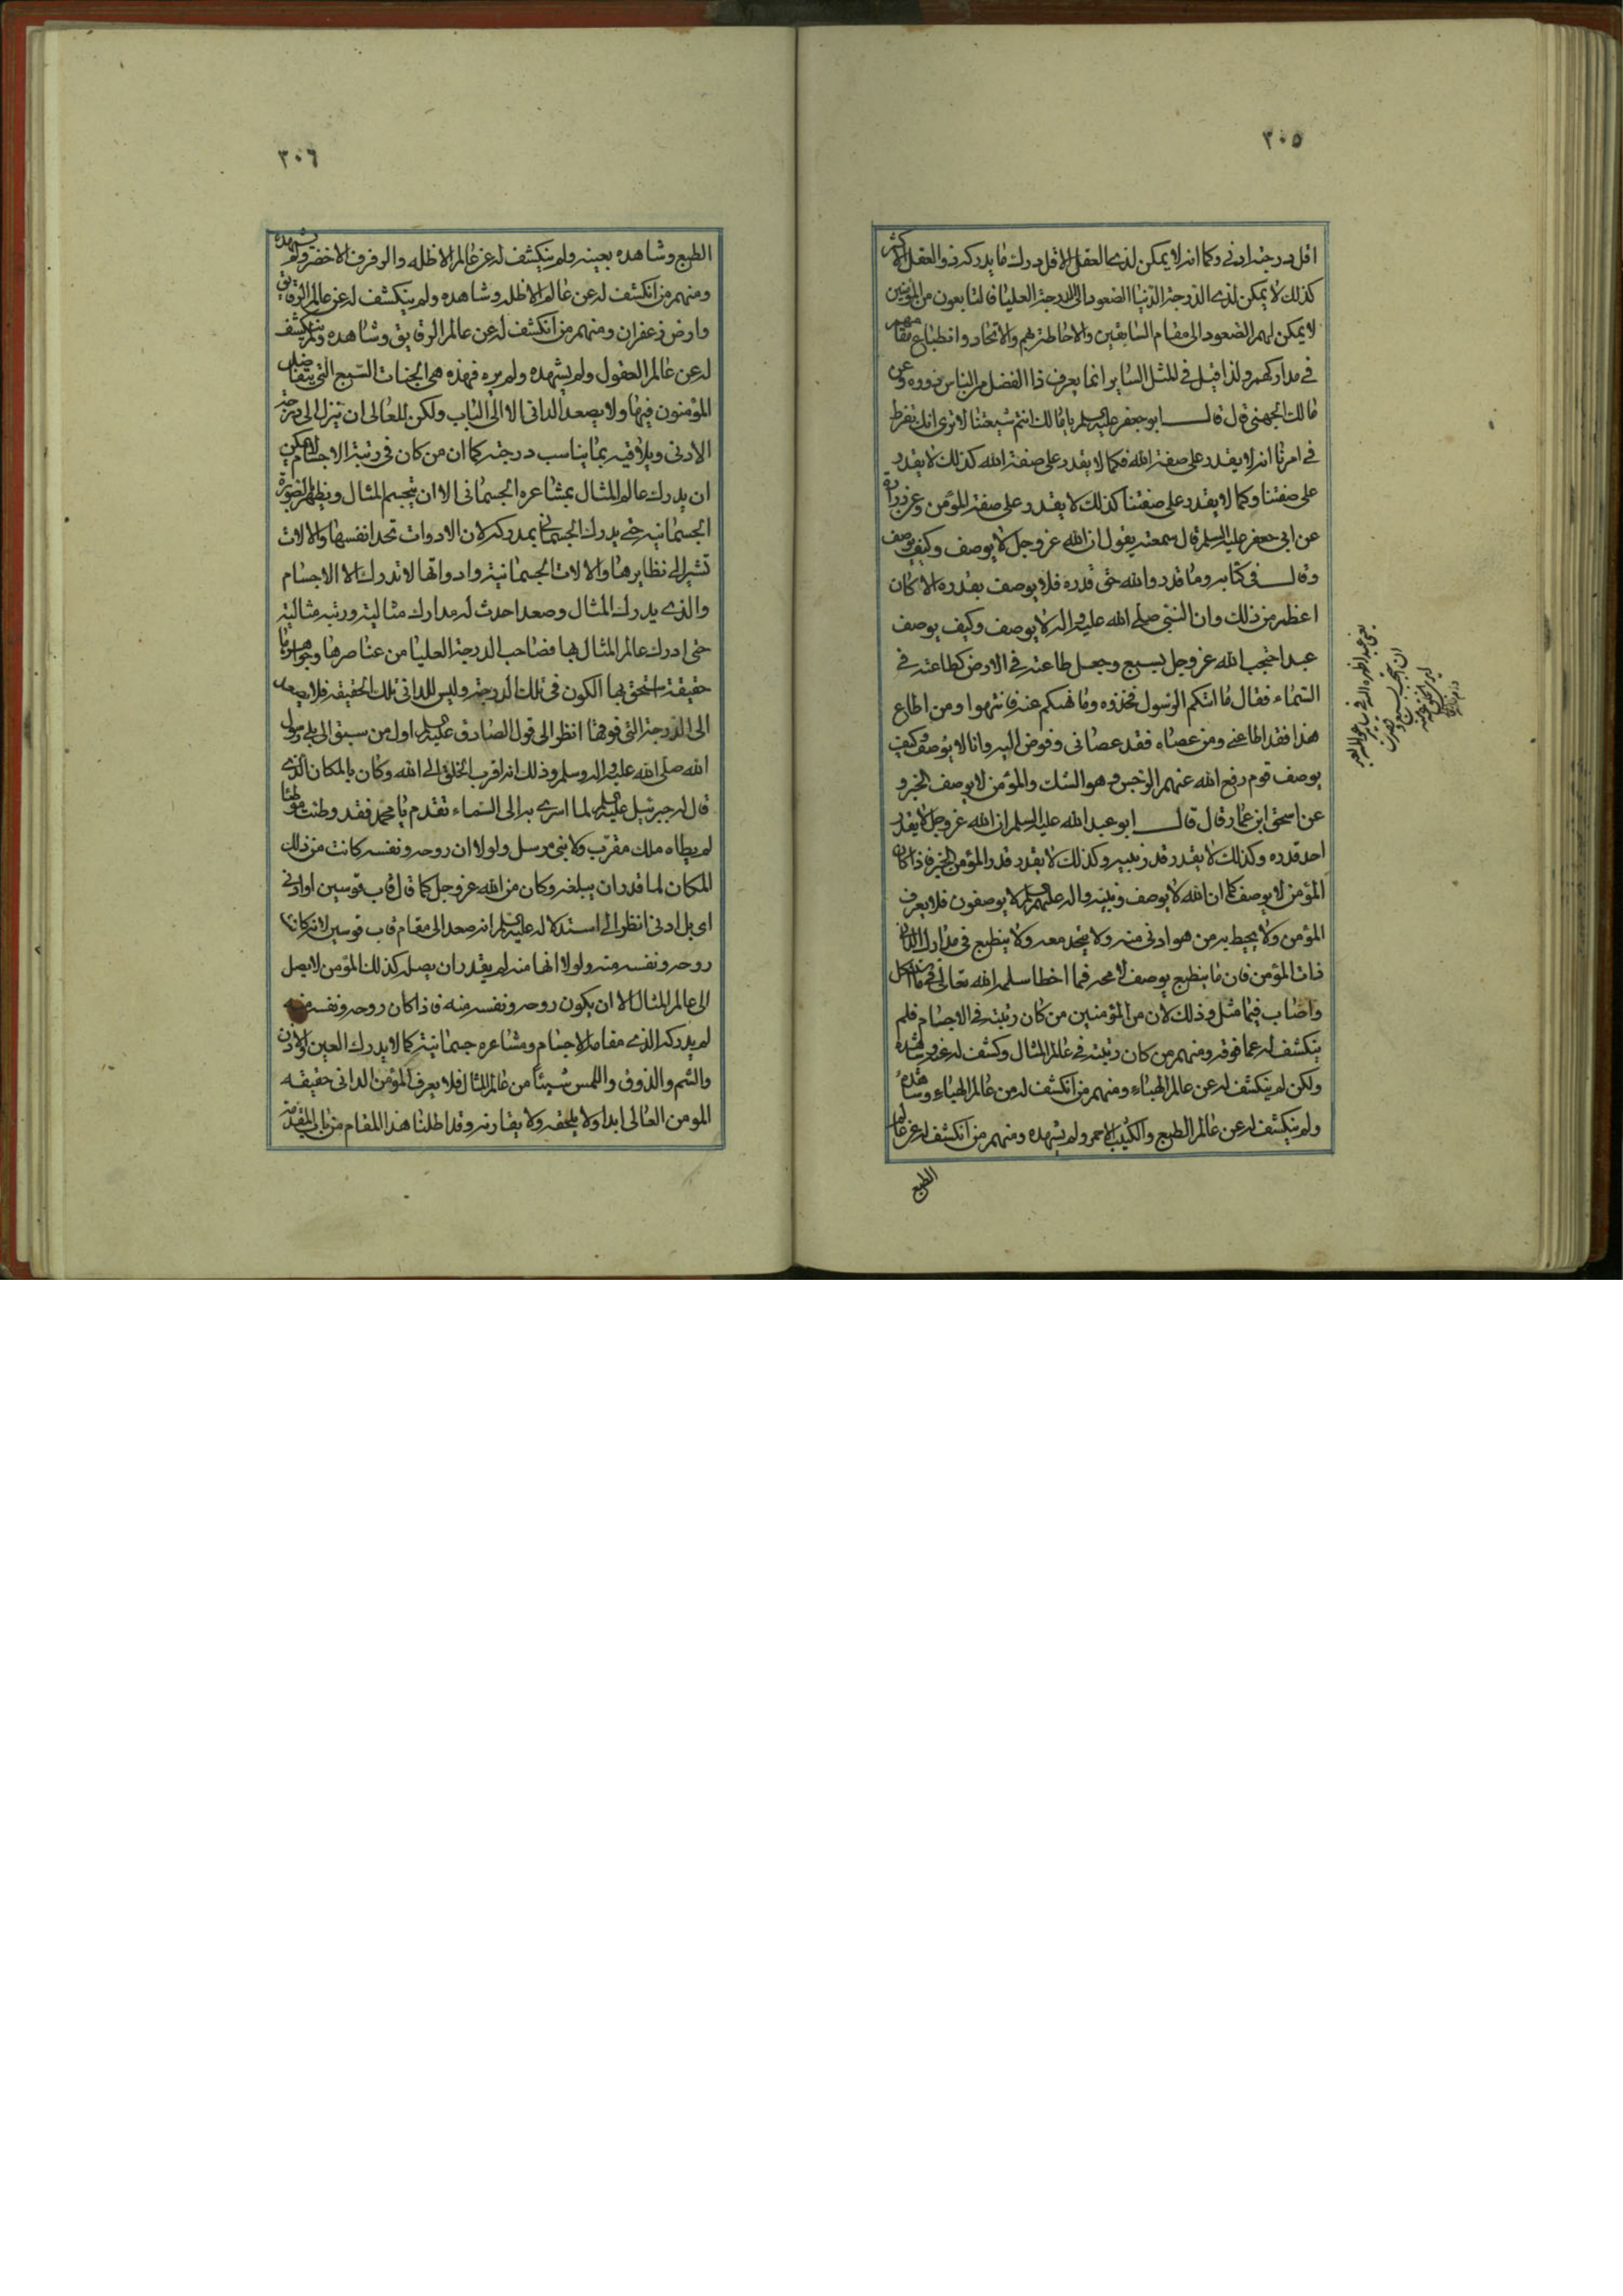 ٣٠٥
اقل درجة ادنى وكما انه لا يمكن لذى العقل الاقل درك ما يدركه ذو العقل الاكثر
كذلك لا يمكن لذى الدرجة الدنيا الصعود الى الدرجة العليا فالتابعون من المؤمنين
لا يمكن لهم الصعود الى مقام السابقين والاحاطة بهم والاتحاد وانطباع مقامهم
فى مداركهم ولذا قيل فى المثل الساير انما يعرف ذا الفضل من الناس ذووه وعن
مالك الجهنى قال قال ابو جعفر عليه السلم يا مالك انتم شيعتنا لا ترى انك تفرط
فى امرنا انه لا يقدر على صفة الله فكما لا يقدر على صفة الله كذلك لا يقدر
على صفتنا وكما لا يقدر على صفتنا كذلك لا يقدر على صفة المؤمن وعن زرارة
عن ابى جعفر عليه السلم قال سمعته يقول ان الله عز وجل لا يوصف وكيف يوصف
وقال فى كتابه وما قدروا الله حق قدره فلا يوصف بقدره الا كان
اعظم من ذلك وان النبى صلى الله عليه واله لا يوصف وكيف يوصف
عبد احتجب الله عز وجل بسبع وجعل طاعته فى الارض كطاعته فى
السماء فقال ما اتيكم الرسول فخذوه وما نهيكم عنه فانتهوا ومن اطاع
هذا فقد اطاعنى ومن عصاه فقد عصانى وفوض اليه وانا لا يوصف وكيف
يوصف قوم رفع الله عنهم الرجس وهو الشك والمؤمن لا يوصف الخبر و
عن اسحق ابن عمار قال قال ابو عبد الله عليه السلم ان الله عز وجل لا يقدر
احد قدره وكذلك لا يقدر قدر نبيه وكذلك لا يقدر قدر المؤمن الخبر فاذا كان
المؤمن لا يوصف كما ان الله لا يوصف ونبيه واله عليهم السلم لا يوصفون فلا يعرف
المؤمن ولا يحيط به من هو ادنى منه ولا يتحد معه ولا ينطبع فى مدارك الدانى
ذات المؤمن فان ما ينطبع يوصف لا محه فما اخطا سلمه الله تعالى
واصاب فيما مثل وذلك لان من المؤمنين من كان رتبته فى الاجسام فلم
ينكشف له عما فوقه ومنهم من كان رتبته فى عالم المثال وكشف له عنه وشاهده
ولكن لم ينكشف له عن عالم الهباء ومنهم من انكشف له عن عالم الهباء وشاهده
ولم ينكشف له عن عالم الطبع والكثيب الاحمر ولم يشهده ومنهم من انكشف له عن عالم
الطبع
٣٠٦
الطبع وشاهده بعينه ولم ينكشف له عن عالم الاظله والرفرف الاخضر ولم يشهده
ومنهم من انكشف له عن عالم الاظله وشاهده ولم ينكشف له عن عالم الرقايق
وارض زعفران ومنهم من انكشف له عن عالم الرقايق وشاهده ولم ينكشف
له عن عالم العقول ولم يشهده ولم يره فهذه هى الجنات السبع التى يتفاضل
المؤمنون فيها ولا يصعد الدانى الا الى الباب ولكن للعالى ان تنزل الى درجة
الادنى ويلاقيه بما يناسب درجته كما ان من كان فى رتبة الاجسام لا يمكن
ان يدرك عالم المثال بمشاعره الجسمانى الا ان يتجسم المثال ويظهر بالصورة
الجسمانيه حتى يدرك الجسمانى بمدركه لان الادوات تحد انفسها والالات
تشير الى نظايرها والالات الجسمانية وادواتها لا تدرك الا الاجسام
والذى يدرك المثال وصعد احدث له مدارك مثالية ورتبه مثالية
حتى ادرك عالم المثال بها فصاحب الدرجة العليا من عناصرها وجواهرها
حقيقة استحق بها الكون فى تلك الدرجة وليس للدانى تلك الحقيقه فلا يصعد
الى الدرجة التى فوقها انظر الى قول الصادق عليه السلم اول من سبق الى بلى رسول
الله صلى الله عليه واله وسلم وذلك انه اقرب الخلق الى الله وكان بالمكان الذى
قال له جبرئيل عليه السلم لما اسرى به الى السماء تقدم يا محمد فقد وطئت موطئا
لم يطاه ملك مقرب ولا نبى مرسل ولولا ان روحه ونفسه كانت من ذلك
المكان لما قدر ان يبلغه وكان من الله عز وجل كما قال قاب قوسين او ادنى
اى بل ادنى انظر الى استدلاله عليه السلم انه صعد الى مقام قاب قوسين لانه كان
روحه ونفسه منه ولولا انها منه لم يقدر ان يصله كذلك المؤمن لا يصل
الى عالم المثال الا ان يكون روحه ونفسه منه فاذا كان روحه ونفسه منه
لم يدركه الذى مقامه الاجسام ومشاعره جسمانية كما لا يدرك العين والاذن
والشم والذوق واللمس شيئا من عالم المثال فلا يعرف المؤمن الدانى حقيقه
المومن العالى ابدا ولا يلحقه ولا يقارنه وقد اطلنا هذا المقام من باب المقدمة